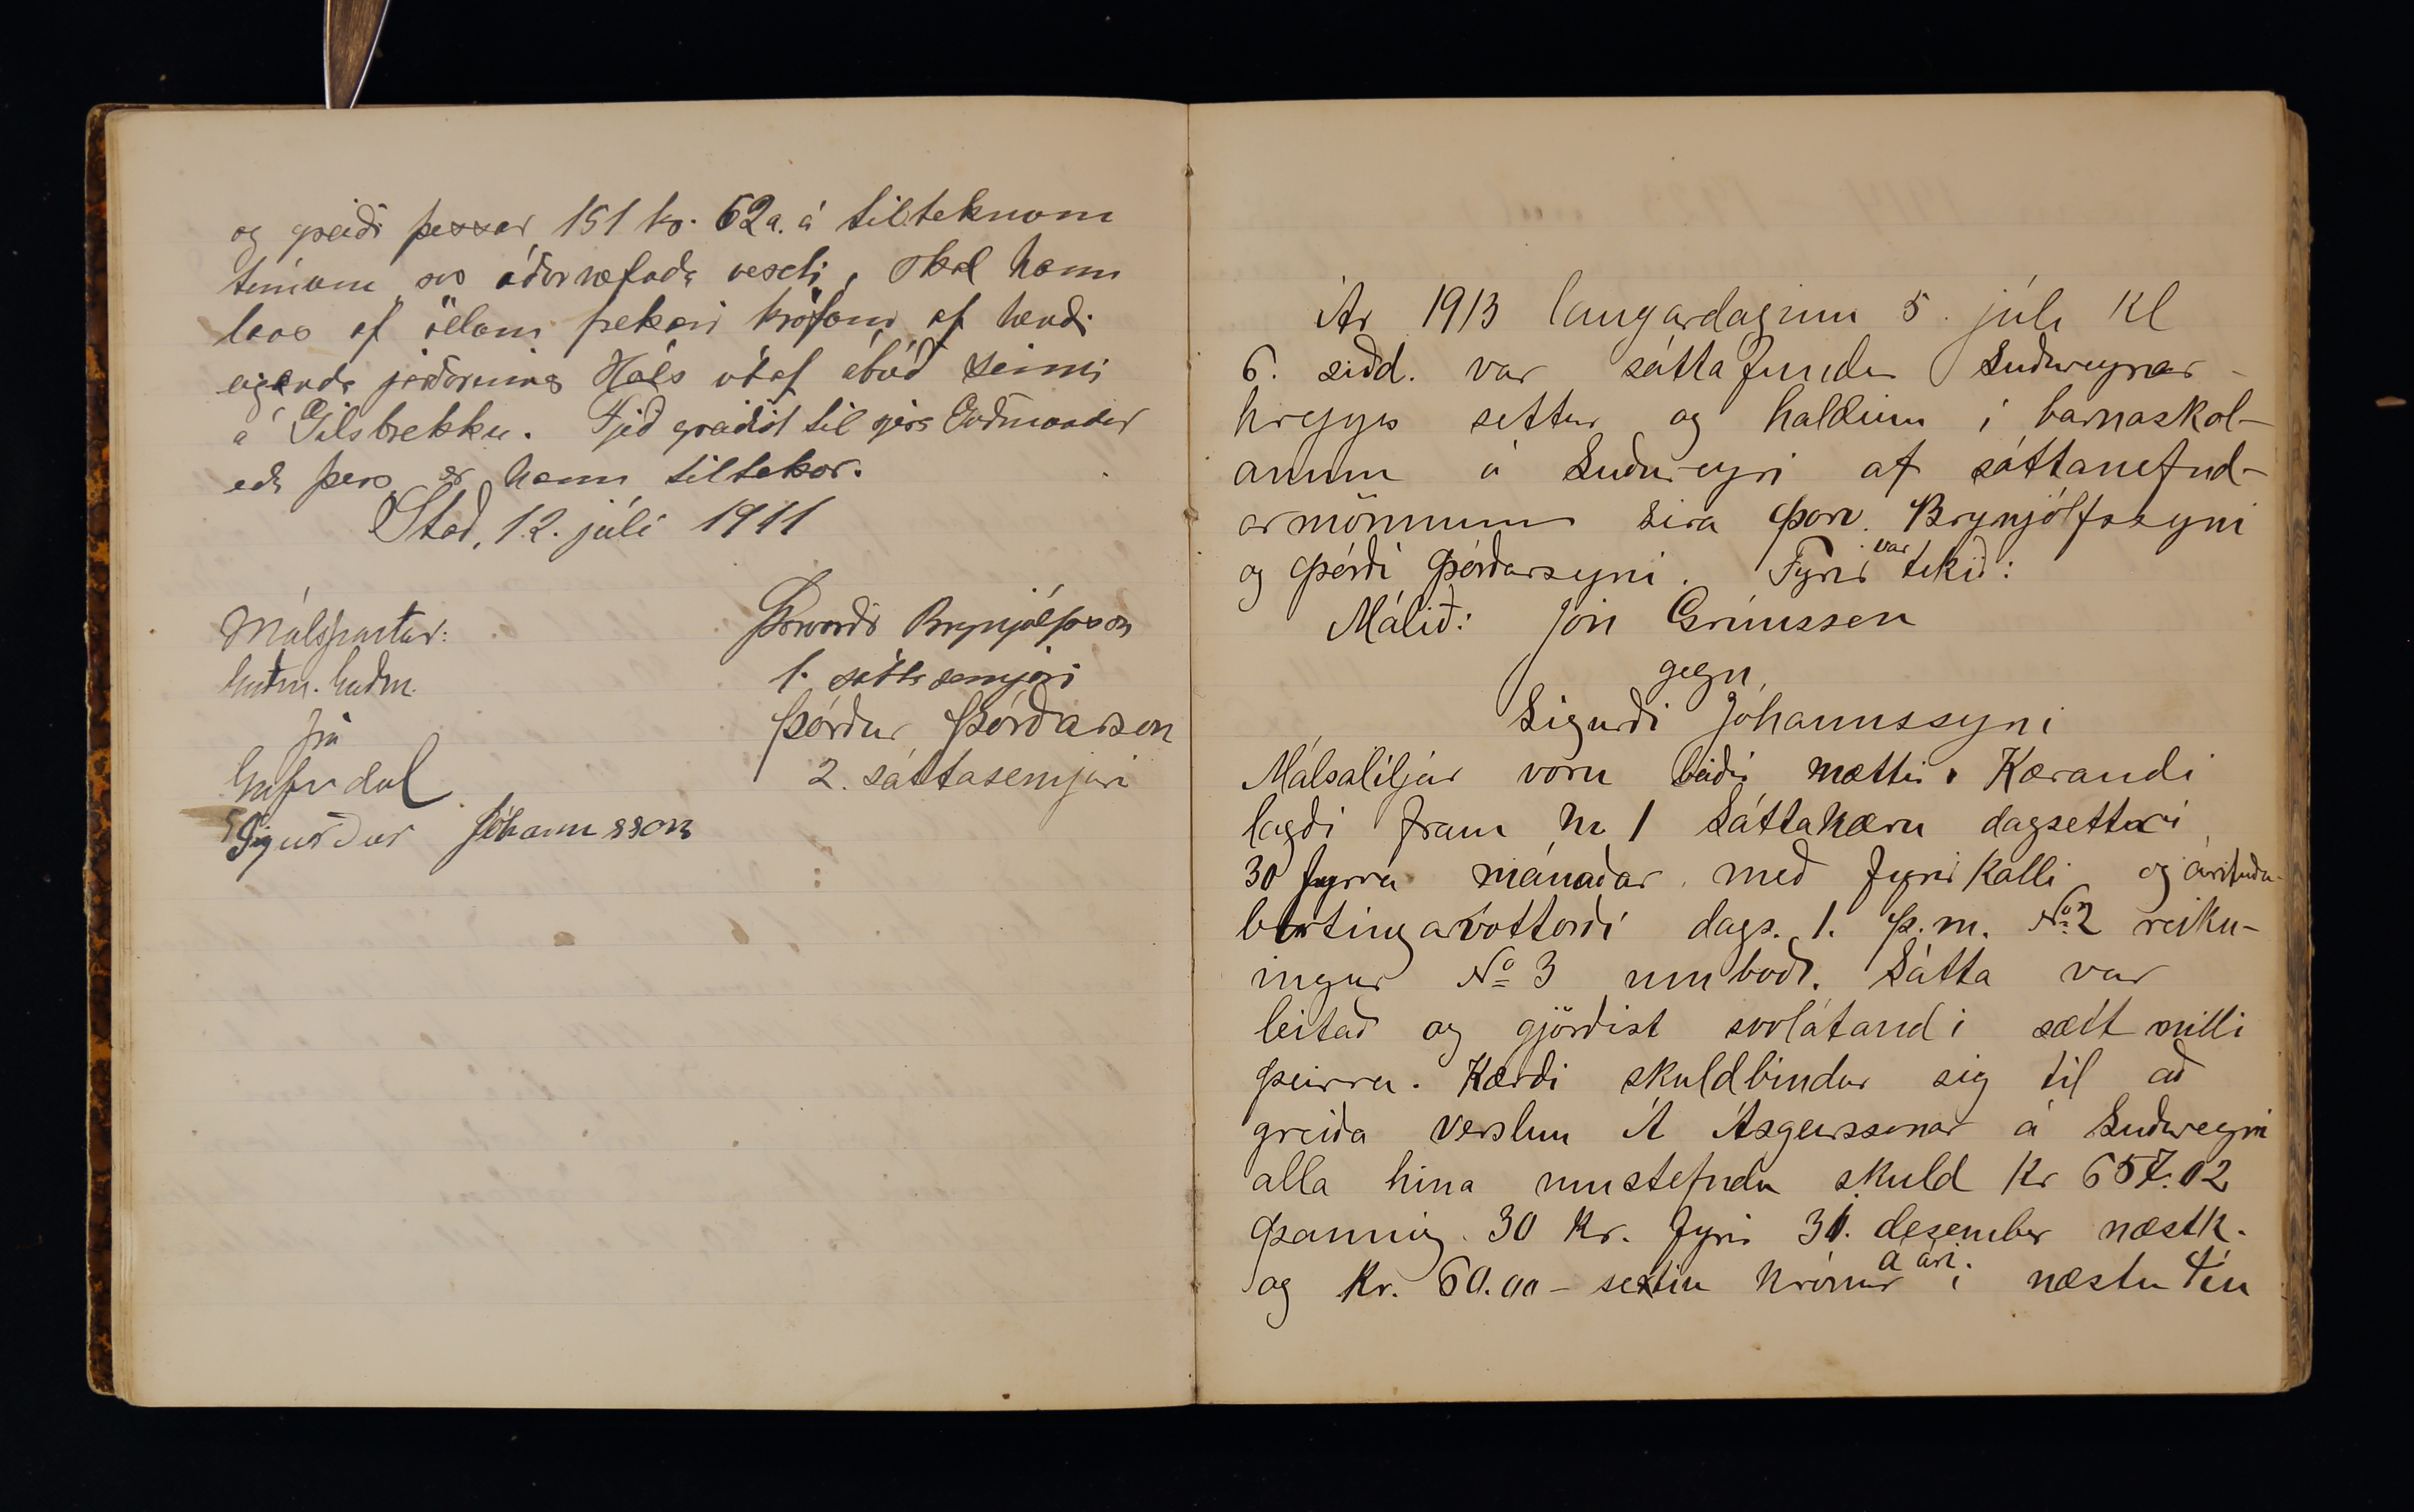 og greiði þessar 151 kr. 62 a. á tilteknom
tímom svo áðurnefnda veseti, skal hann
laus af öllom frekari kröfom af hendi
eiganda jarðarinnar Háls útaf ábúð sinni
á Gilsbrekku. Fjeð greiðist til sjera Guðmundar
eða þess er hann tiltekur.
Stað, 12. júlí 1911
Málspartar:
Guðm. Guðm.
frá
Gufudal
Sigurður Jóhannsson
Þorvarður Brynjólfsson
1. sáttasemjari
Þórður Þórðarson
2. sáttasemjari
Ár 1913 laugardaginn 5. júlí kl
6. síðd. var sáttafundur Suðureyrar-
hrepps settur og haldinn í barnaskól-
anum á Suðureyri af sáttanefnd-
armönnum síra Þorv. Brynjólfssyni
og Þórði Þórðarsyni. Fyrir var tekið:
Málið: Jón Grímsson
gegn
Sigurði Jóhannssyni
Málsaðiljar voru báðir mættir. Kærandi
lagði fram No 1 Sáttakæru dagsettri
30 fyrra mánaðar með fyrirkalli og árituðu
birtingarvottorði dags. 1. þ.m. No 2 reikn-
ingur No 3 umboð. Sátta var
leitað og gjörðist svolátandi sætt milli
þeirra. Kærði skuldbindur sig til að
greiða verslun Á Ásgeirssonar á Suðureyri
alla hina umstefndu skuld kr 657.02
þannig 30 kr. fyrir 31. desember næstk.
og kr. 60.00 - sextíu krónur á ári í næstu tíu